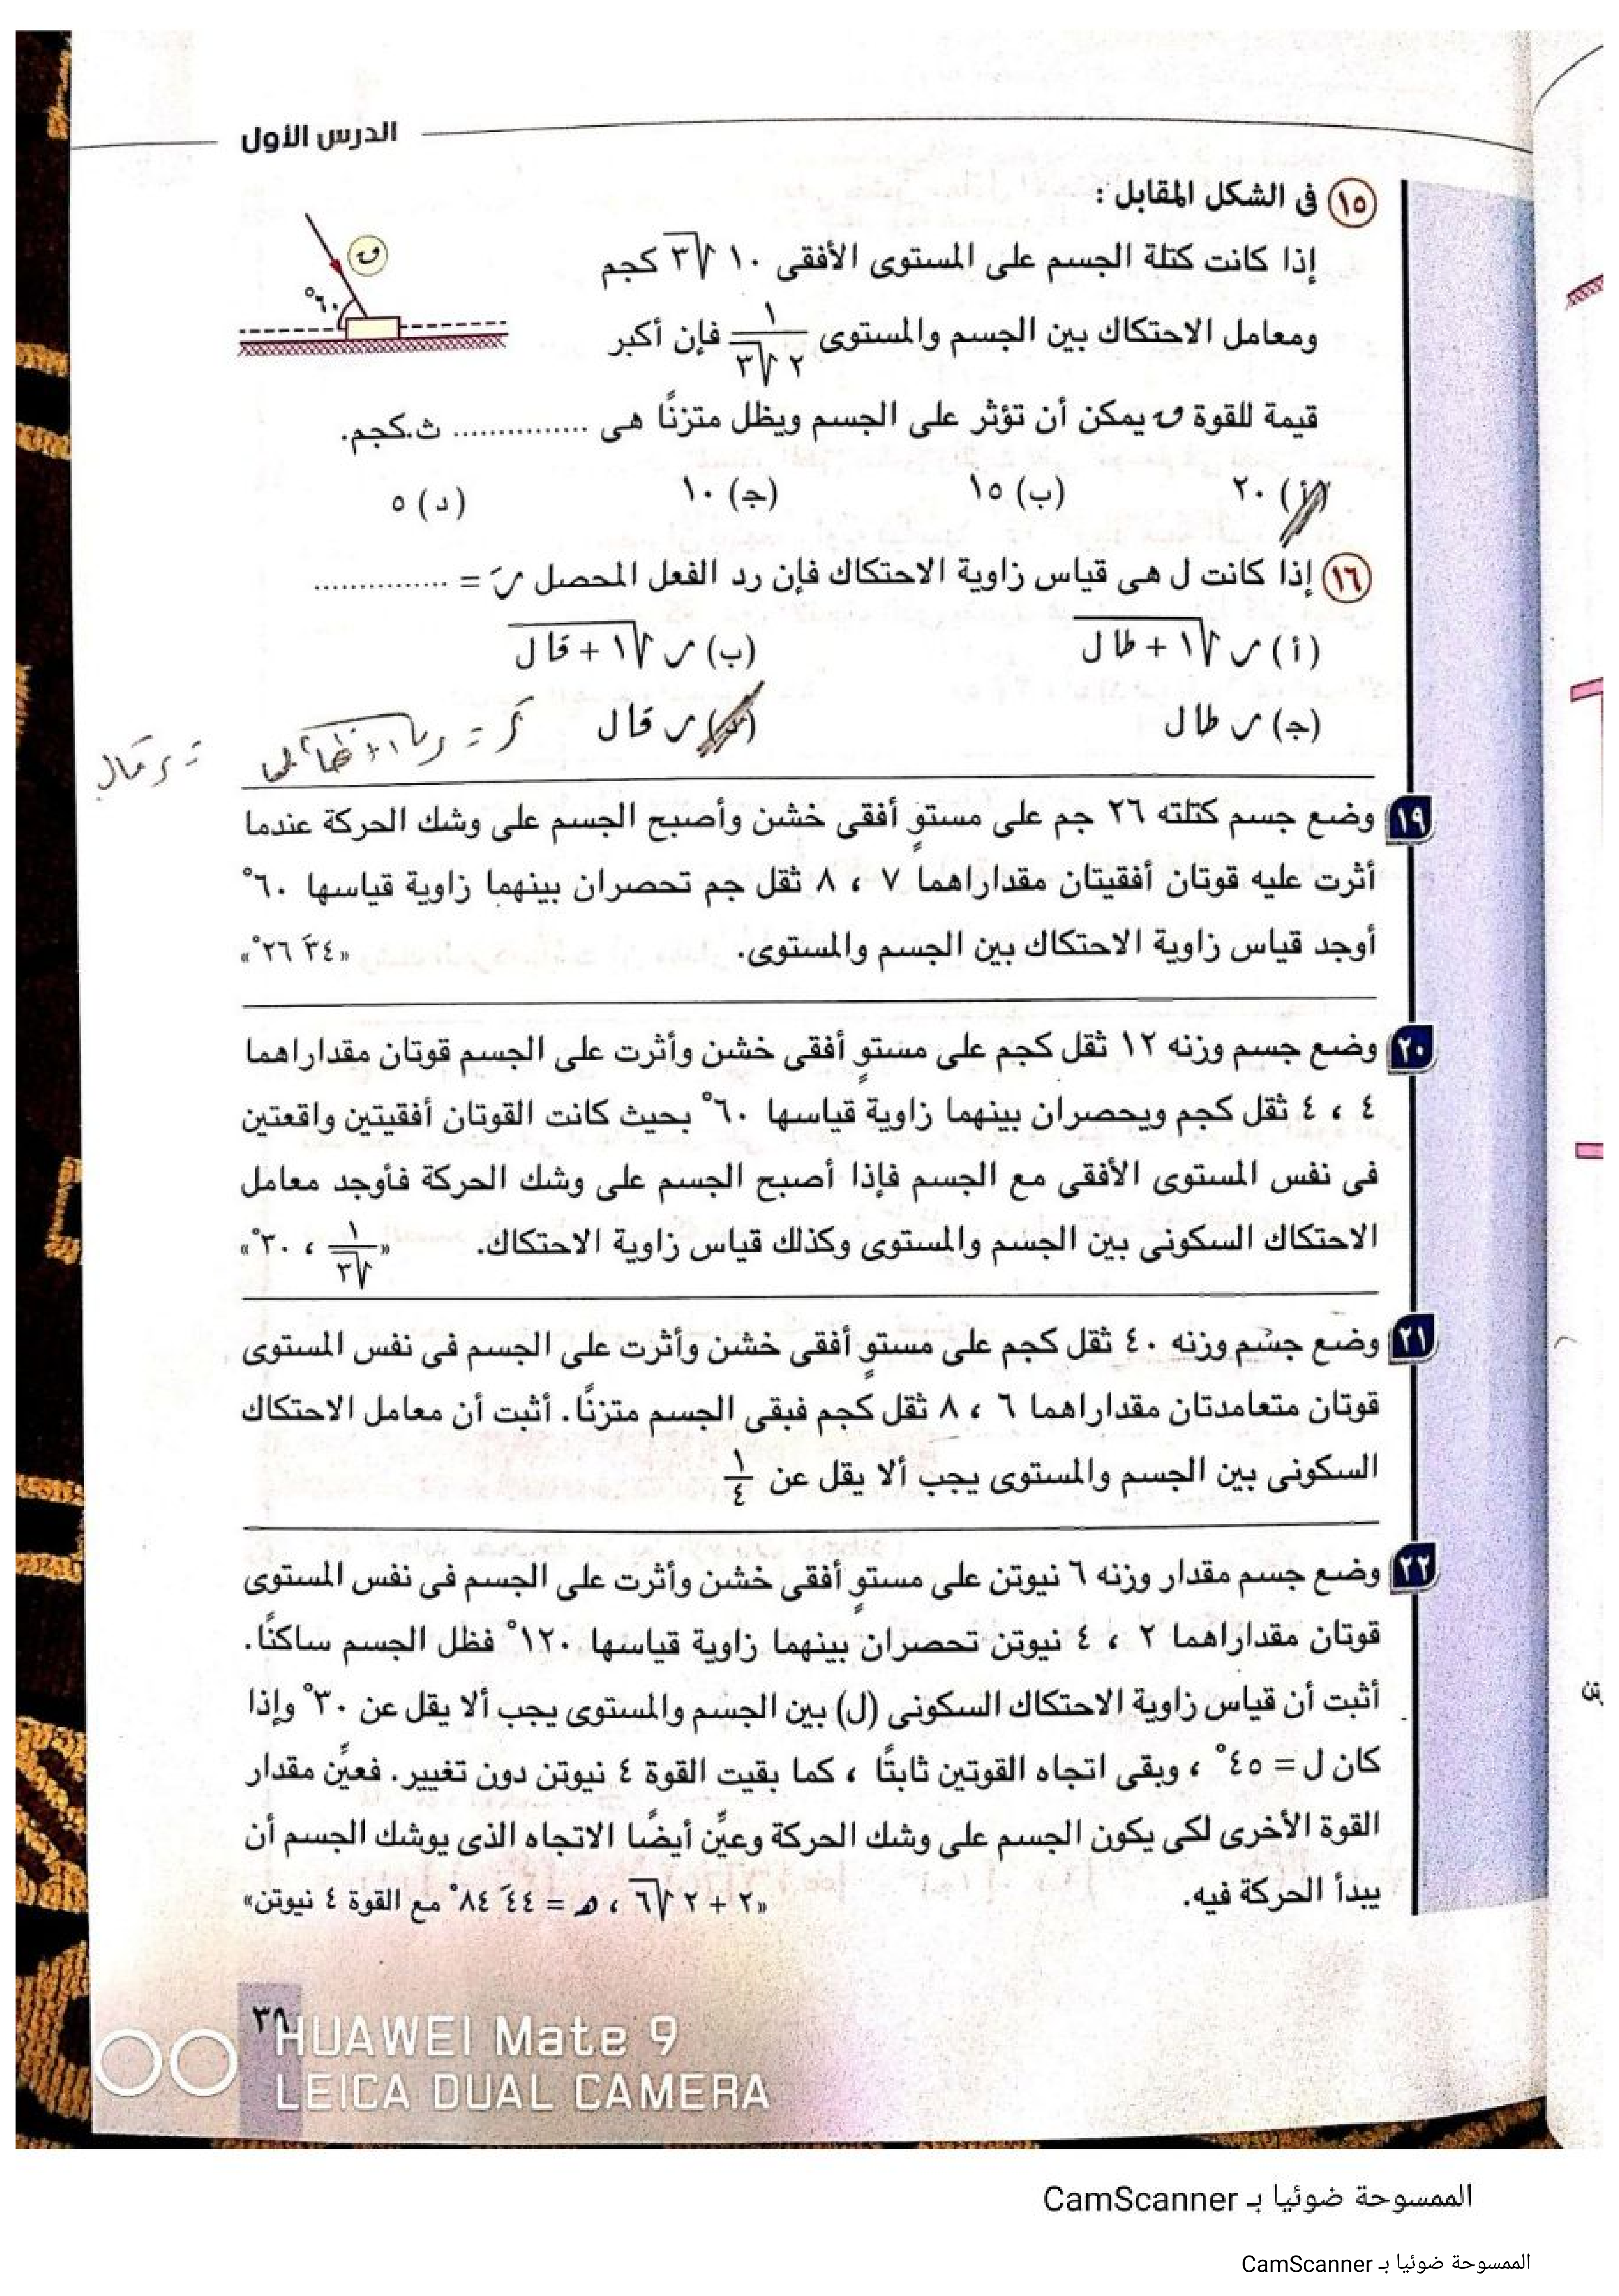 الدرس الأول
١٥ فى الشكل المقابل :
إذا كانت كتلة الجسم على المستوى الأفقى ١٠ √٣ كجم
ومعامل الاحتكاك بين الجسم والمستوى ١/(٢ √٣) فإن أكبر
قيمة للقوة ق يمكن أن تؤثر على الجسم ويظل متزنًا هى ............... ث.كجم.
ق
٦٠°
(أ) ٢٠ (ب) ١٥ (جـ) ١٠ (د) ٥
١٦ إذا كانت ل هى قياس زاوية الاحتكاك فإن رد الفعل المحصل رَ = ...............
(أ) ر √(١ + طا ل) (ب) ر √(١ + قا ل)
(جـ) ر طا ل (د) ر قا ل
١٩ وضع جسم كتلته ٢٦ جم على مستوٍ أفقى خشن وأصبح الجسم على وشك الحركة عندما
أثرت عليه قوتان أفقيتان مقداراهما ٧ ، ٨ ثقل جم تحصران بينهما زاوية قياسها ٦٠°
أوجد قياس زاوية الاحتكاك بين الجسم والمستوى. «٣٤َ ٢٦°»
٢٠ وضع جسم وزنه ١٢ ثقل كجم على مستوٍ أفقى خشن وأثرت على الجسم قوتان مقداراهما
٤ ، ٤ ثقل كجم ويحصران بينهما زاوية قياسها ٦٠° بحيث كانت القوتان أفقيتين واقعتين
فى نفس المستوى الأفقى مع الجسم فإذا أصبح الجسم على وشك الحركة فأوجد معامل
الاحتكاك السكونى بين الجسم والمستوى وكذلك قياس زاوية الاحتكاك. «١/√٣ ، ٣٠°»
٢١ وضع جسم وزنه ٤٠ ثقل كجم على مستوٍ أفقى خشن وأثرت على الجسم فى نفس المستوى
قوتان متعامدتان مقداراهما ٦ ، ٨ ثقل كجم فبقى الجسم متزنًا. أثبت أن معامل الاحتكاك
السكونى بين الجسم والمستوى يجب ألا يقل عن ١/٤
٢٢ وضع جسم مقدار وزنه ٦ نيوتن على مستوٍ أفقى خشن وأثرت على الجسم فى نفس المستوى
قوتان مقداراهما ٢ ، ٤ نيوتن تحصران بينهما زاوية قياسها ١٢٠° فظل الجسم ساكنًا.
أثبت أن قياس زاوية الاحتكاك السكونى (ل) بين الجسم والمستوى يجب ألا يقل عن ٣٠° وإذا
كان ل = ٤٥° ، وبقى اتجاه القوتين ثابتًا ، كما بقيت القوة ٤ نيوتن دون تغيير. فعيِّن مقدار
القوة الأخرى لكى يكون الجسم على وشك الحركة وعيِّن أيضًا الاتجاه الذى يوشك الجسم أن
يبدأ الحركة فيه. «٢ + ٢ √٦ ، هـ = ٤٤َ ٨٤° مع القوة ٤ نيوتن»
٣٩
HUAWEI Mate 9
LEICA DUAL CAMERA
الممسوحة ضوئيا بـ CamScanner
الممسوحة ضوئيا بـ CamScanner